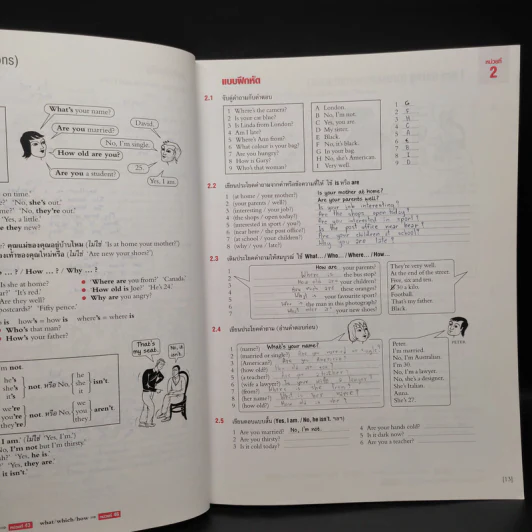 ons)
What's your name?
Are you married?
David.
No, I'm single.
How old are you?
25.
Are you a student?
Yes, I am.
on time.'
she's out.'
'No, they're out.'
'Yes, a little.'
they new?
is she at home?
'It's red.'
Are they well?
'Fifty pence.'
Where are you from? 'Canada.'
How old is Joe? 'He's 24.'
Why are you angry?
how's = how is where's = where is
Who's that man?
How's your father?
he's
she's
it's
not หรือ No,
he
she
it
isn't.
we're
you're
they're
not หรือ No,
we
you
they
aren't.
That's my seat.
No, it isn't.
I am.' (ไม่ใช่ 'Yes, I'm.')
No, I'm not
'Yes, he is.'
'Yes, they are.'
it isn't.'
what/which/how
หน่วยที่
2
แบบฝึกหัด
2.1 จับคู่คำถามกับคำตอบ
1 Where's the camera?
2 Is your car blue?
3 Is Linda from London?
4 Am I late?
5 Where's Ann from?
6 What colour is your bag?
7 Are you hungry?
8 How is Gary?
9 Who's that woman?
A London.
B No, I'm not.
C Yes, you are.
D My sister.
E Black.
F No, it's black.
G In your bag.
H No, she's American.
I Very well.
1 G
2 F
3 H
4 C
5 A
6 E
7 B
8 I
9 D
2.2 เขียนประโยคคำถามจากคำหรือข้อความที่ให้ ใช้ is หรือ are
1 (at home / your mother?) Is your mother at home?
2 (your parents / well?) Are your parents well?
3 (interesting / your job?) Is your job interesting?
4 (the shops / open today?) Are the shops open today?
5 (interested in sport / you?) Are you interested in sport?
6 (near here / the post office?) Is the post office near hear?
7 (at school / your children?) Are your children at school?
8 (why / you / late?) Why are you late?
2.3 เติมประโยคคำถามให้สมบูรณ์ ใช้ What... / Who... / Where... / How...
1 How are your parents?
2 Where is the bus stop?
3 How old are your children?
4 How much are these oranges?
5 What is your favourite sport?
6 Who is the man in this photograph?
7 What color is your new shoes?
They're very well.
At the end of the street.
Five, six and ten.
a kilo.
Football.
That's my father.
Black.
2.4 เขียนประโยคคำถาม (อ่านคำตอบก่อน)
1 (name?) What's your name?
2 (married or single?) Are you married or single?
3 (American?) Are you American?
4 (how old?) How old are you?
5 (a teacher?) Are you a teacher?
6 (wife a lawyer?) Is your wife a lawyer?
7 (from?) Where
8 (her name?) What is her name?
9 (how old?) How old is she?
PETER
Peter.
I'm married.
No, I'm Australian.
I'm 30.
No, I'm a lawyer.
No, she's a designer.
She's Italian.
Anna.
She's 27.
2.5 เขียนตอบแบบสั้น (Yes, I am. / No, he isn't. ฯลฯ)
1 Are you married? No, I'm not.
2 Are you thirsty?
3 Is it cold today?
4 Are your hands cold?
5 Is it dark now?
6 Are you a teacher?
[13]